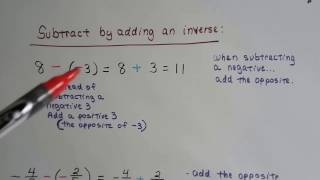 Subtract by adding an inverse:
8 - (-3) = 8 + 3 = 11
when subtracting
a negative...
add the opposite.
ead of
btracting a
negative 3
Add a positive 3
(the opposite of -3)
- 4/5 - (- 2/5) = - 4/5 + 2/5
- add the
opposite